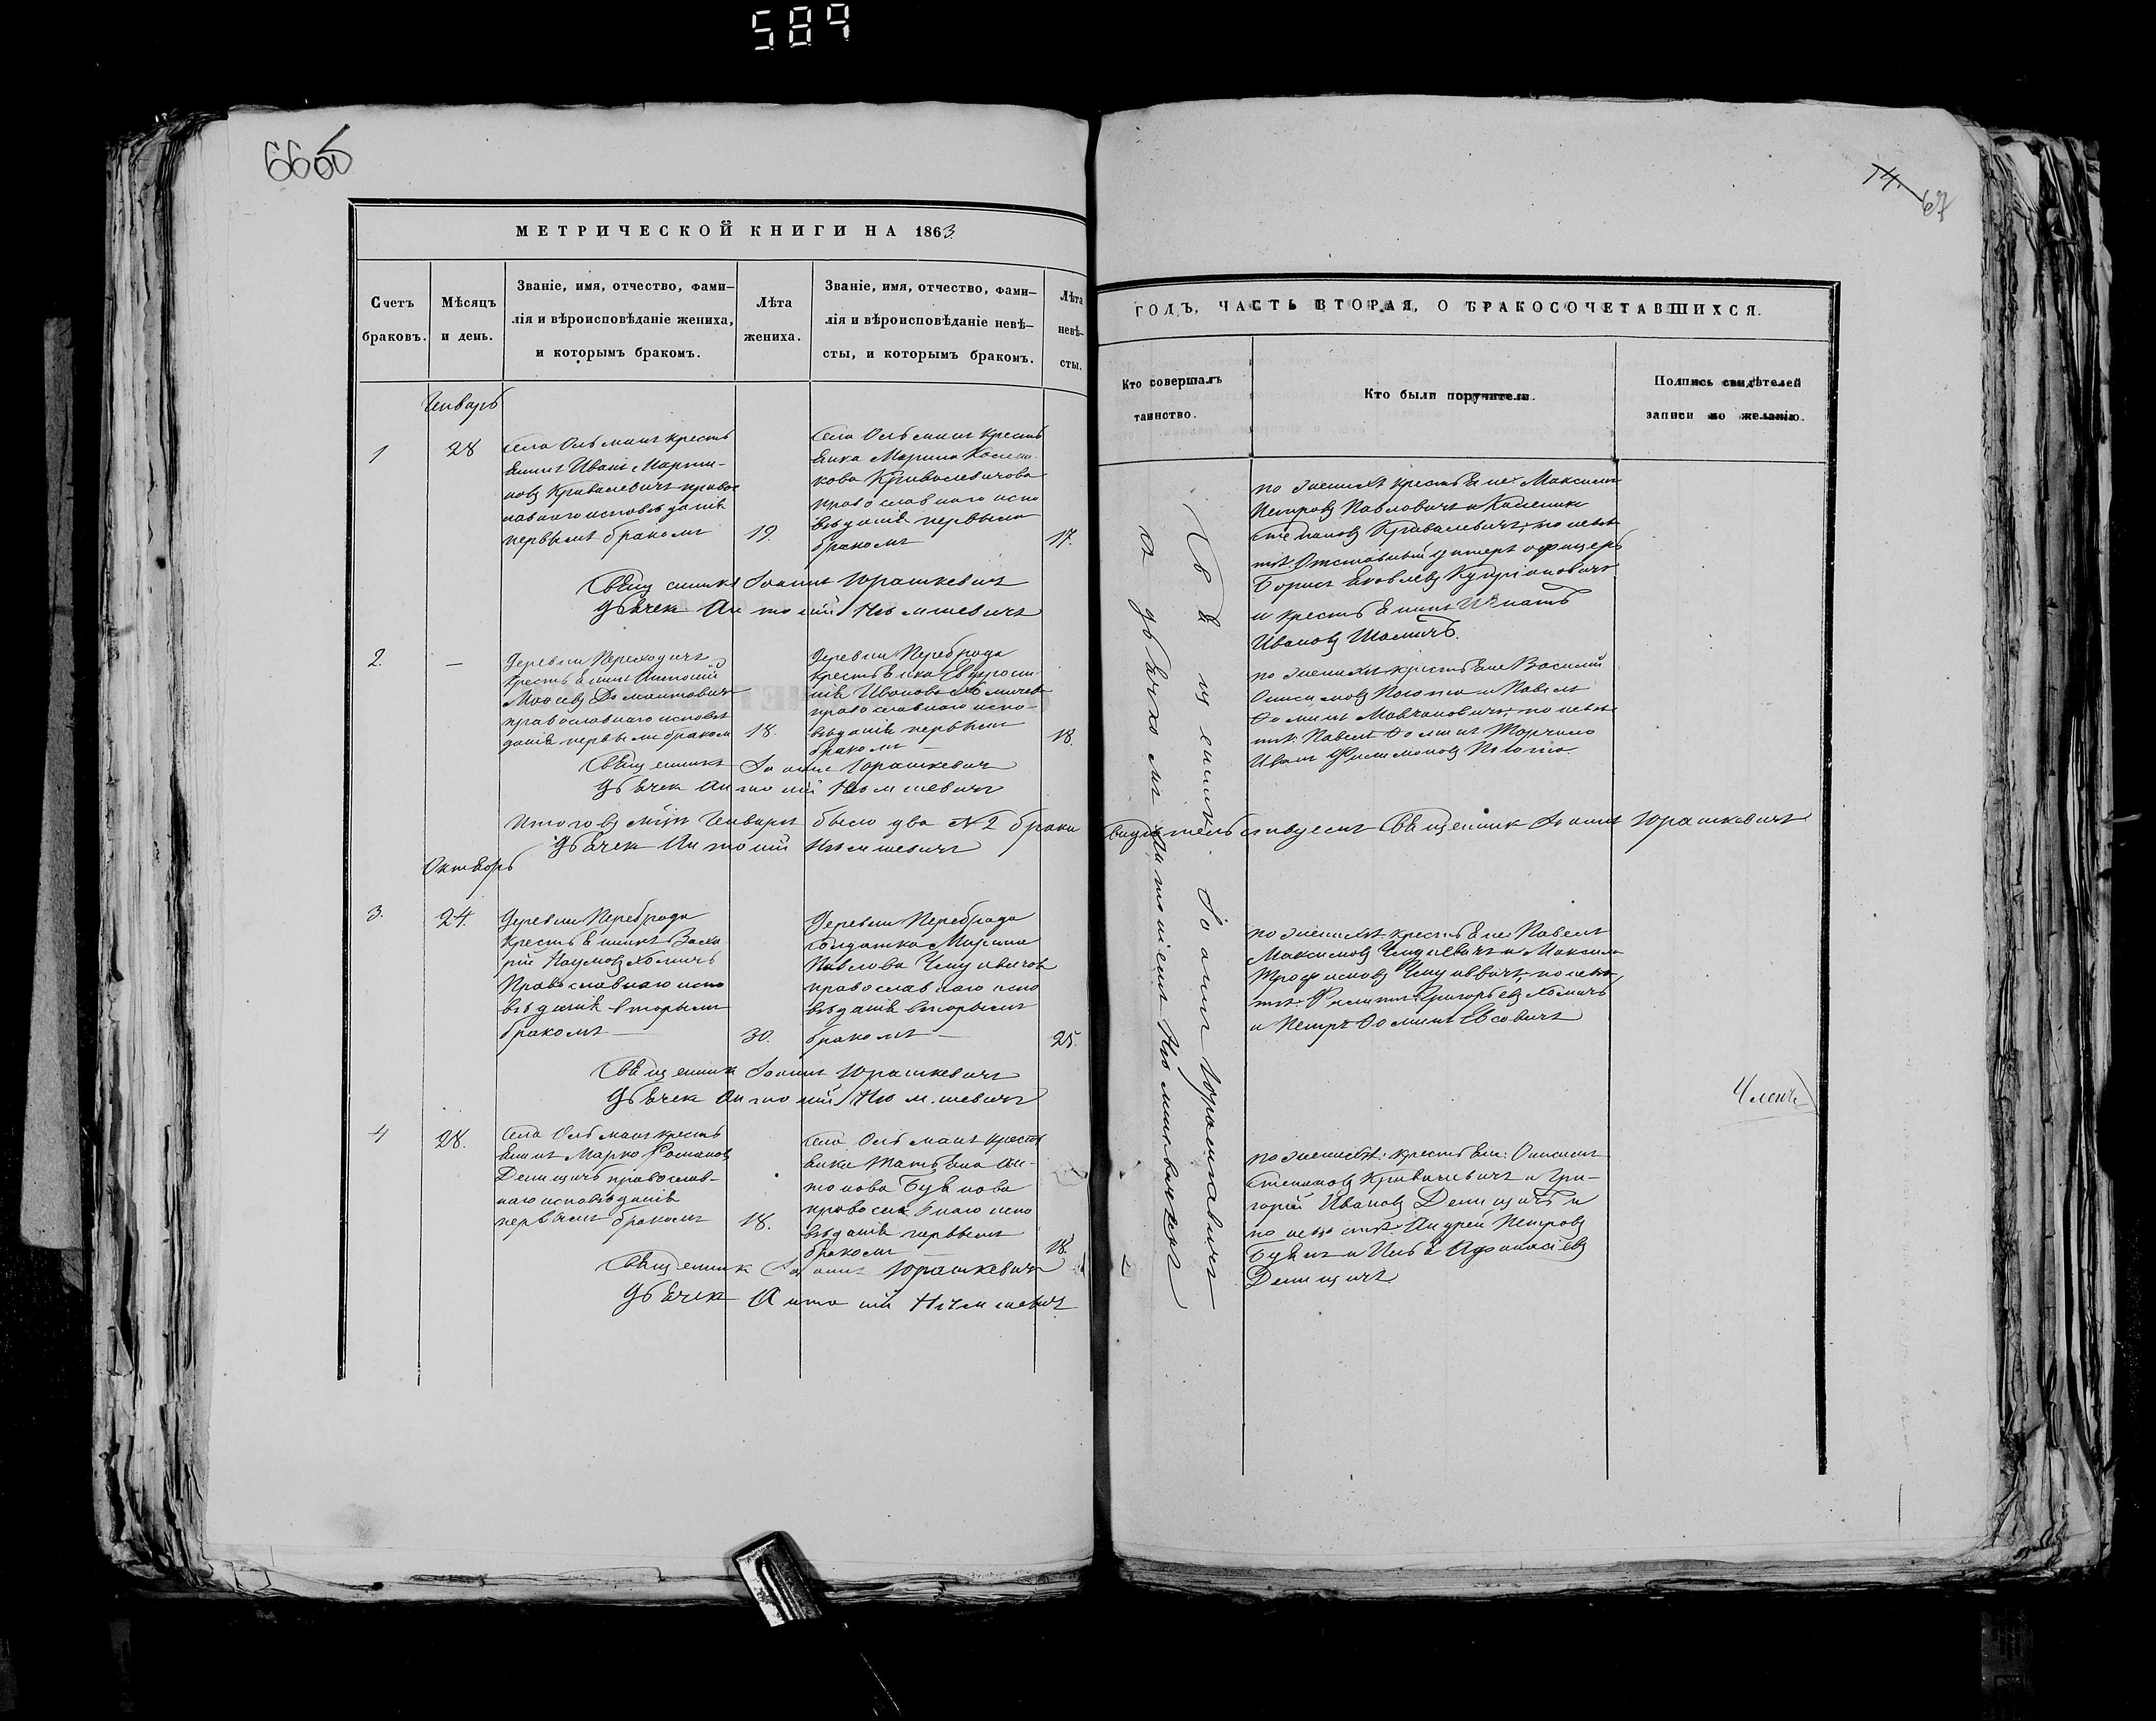 589
66об
МЕТРИЧЕСКОЙ КНИГИ НА 1863
Счетъ браковъ.
Мѣсяцъ и день.
Званіе, имя, отчество, фами-
лія и вѣроисповѣданіе жениха,
и которымъ бракомъ.
Лѣта жениха.
Званіе, имя, отчество, фами-
лія и вѣроисповѣданіе невѣ-
сты, и которымъ бракомъ.
Лѣта невѣ-
сты.
Январь
1
28
Села Ольманъ кресть
янинъ Иванъ Марти-
новъ Кривалевичъ правос
лавнаго исповѣданія
первымъ бракомъ
19.
Села Ольманъ кресть
янка Марина
кова Кривалевичова
православнаго испо
вѣданія первымъ
бракомъ
17.
Священникъ Іоаннъ Юрашкевичъ
Дьячекъ Антоній Нюмшевичъ
2.
—
Деревни Переходичъ
крестьянинъ Антоній
Моисѣевъ Домантовичъ
православнаго исповѣ
данія первымъ бракомъ
18.
Деревни Переброда
крестьянка Евфроси-
нія Иванова Хомичова
православнаго испо-
вѣданія первымъ
бракомъ —
18.
Священникъ Іоаннъ Юрашкевичъ
Дьячекъ Антоній Нюмшевичъ
Итого въ м-цѣ Январѣ было два № 2 брака
Дьячекъ Антоній Нюмшевичъ
Октябрь
3.
24.
Деревни Переброда
крестьянинъ Заха
рій Наумовъ Хомичъ
Православнаго испо
вѣданія вторымъ
бракомъ —
30.
Деревни Переброда
солдатка Марина
Павлова Чмуневичова
православнаго испо
вѣданія вторымъ
бракомъ —
25.
Священникъ Іоаннъ Юрашкевичъ
Дьячекъ Антоній Нюмшевичъ
4
28.
Села Ольманъ кресть
янинъ Марко Романовъ
Денищичъ православ-
наго исповѣданія
первымъ бракомъ
18.
Села Ольманъ кресть
янка Татьяна Ан-
тонова Будянова
православнаго испо
вѣданія первымъ
бракомъ —
18.
Священникъ Іоаннъ Юрашкевичъ
Дьячекъ Антоній Нюмшевичъ
14.
67
ГОДЪ, ЧАСТЬ ВТОРАЯ, О БРАКОСОЧЕТАВШИХСЯ.
Кто совершалъ
таинство.
Кто были поручители.
Подпись свидѣтелей
записи по желанію.
Священникъ Іоаннъ Юрашкевичъ
съ дьячкомъ Антоніемъ Нюмшевичемъ
по женихѣ крестьяне Максимъ
Петровъ Павловичъ и Калиникъ
Степановъ Кривалевичъ, по невѣ
стѣ: Отставный унтеръ офицеръ
Борисъ Яковлевъ Купріановичъ
и крестьянинъ Игнатъ
Ивановъ Шоличъ.
по женихѣ крестьяне Василій
Онисимовъ Полюхо и Павелъ
Ѳоминъ Мавчановичъ, по невѣ
стѣ: Павелъ Ѳоминъ Жарчило
Иванъ Филимоновъ Полюхо
свидѣтельствуетъ Священникъ Іоаннъ Юрашкевичъ
по женихѣ крестьяне Павелъ
Максимовъ Чмуневичъ и Максимъ
Трофимовъ Чмуневичъ, по невѣ
стѣ: Филиппъ Григорьевъ Хомичъ
и Петръ Ѳоминъ Евсовичъ
Членъ
по женихѣ: крестьяне: Онисимъ
Степановъ Кривалевичъ и Гри-
горій Ивановъ Денищичъ и
по невѣстѣ: Андрей Петровъ
Будянъ и Илья Афанасіевъ
Денищичъ